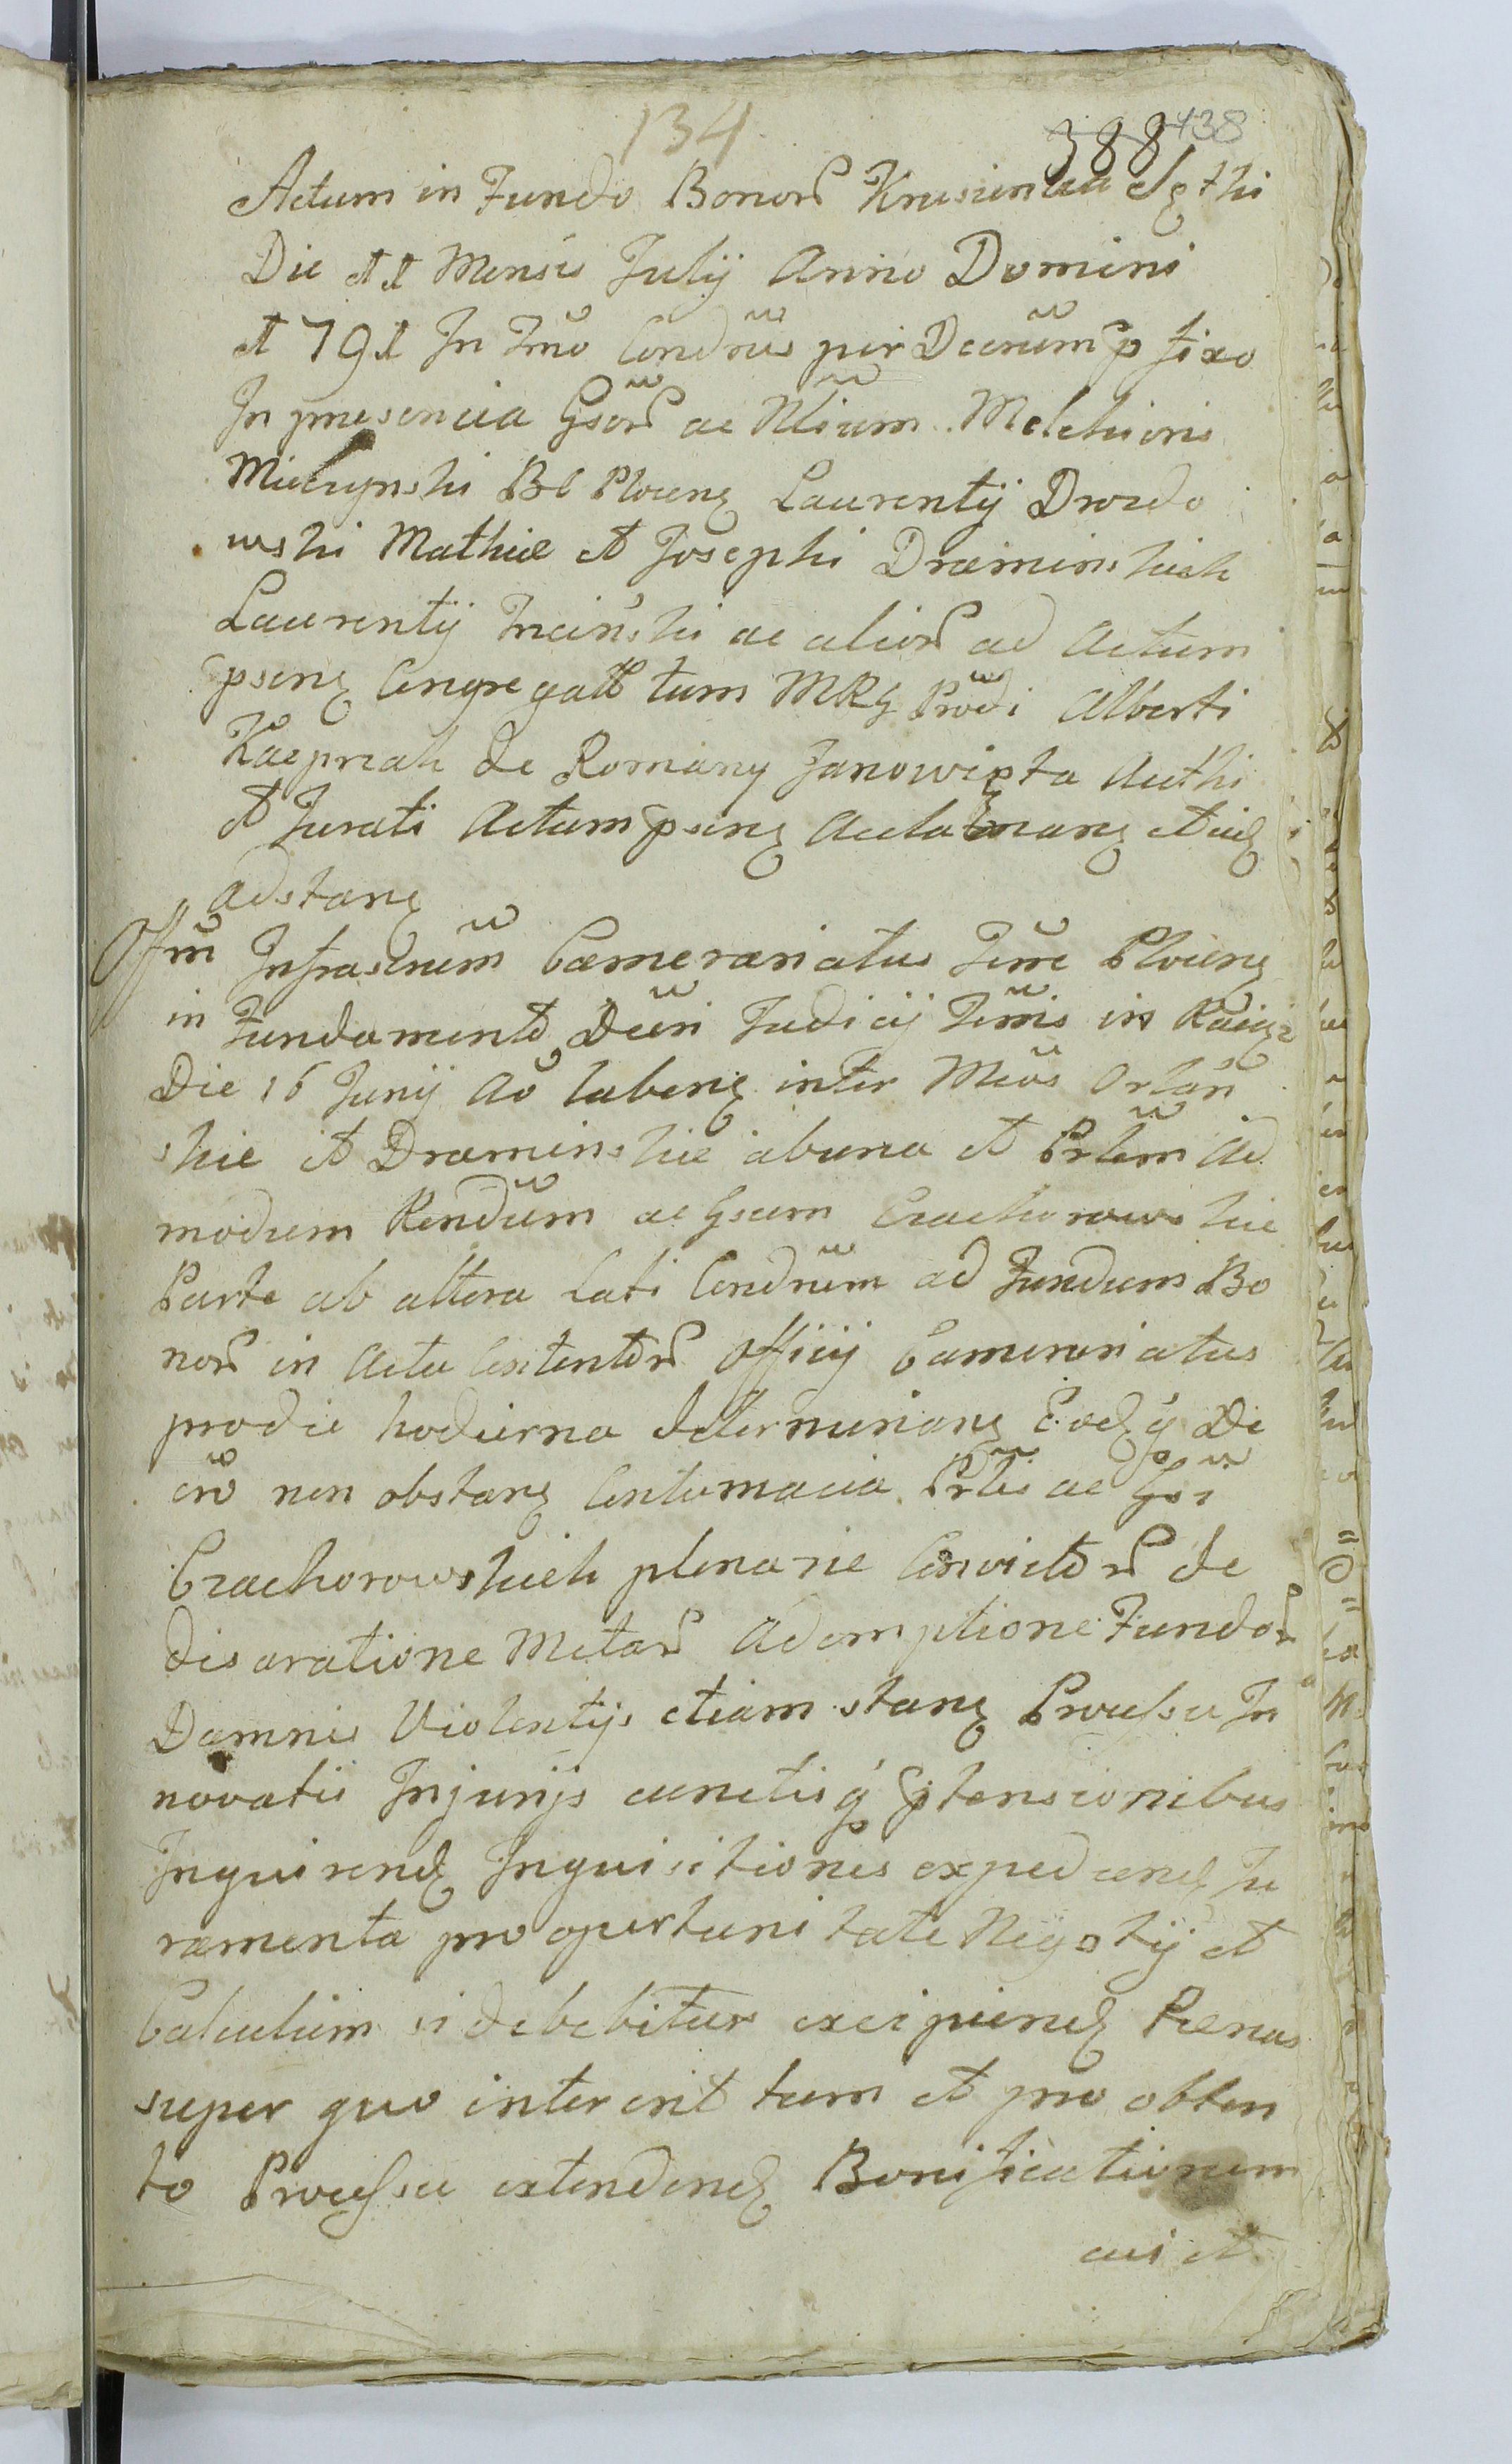 134
388 138
Actum in Fundo Bonorũ Krusienica Sgthi
Die 11 Mensis Julij Anno Domini
1791 In Trno Condrio per Decrum pfixo
In presencia Gsorũ ac Nlium Melchioris
Mieczynski Bl Ploceng Laurentij Drozdo
wski Mathiæ et Josephi Dræminskich
Laurentij Trcinski ac aliorũ ad Actum
pseng Congregatt tum MRG Prodi Alberti
Kacprzak de Romany Janowięta Authi
et Jurati Actum pseng Acclamang
adstang
Offm Infrascrum Cæmerariatus Terræ Ploceng
in Fundamento Decri Judicij Terris in Raciąz
Die 16 Junij Aõ labeng inter Mcos Orlan
skie et Dræminskie abuna et Prlem Ad
modum Rendum ac Gsum Czachorowskie
Parte ab altera Lati Condrum ad Fundum Bo
norũ in Actu Contentorũ Officij Camerariatus
prodie hodierna determinang Eodq De
cro non obstang Contumacia Prlis ac Gsi
Czachorowskich plenarie Convictorũ de
disaratione Metarũ Ademptione Fundorũ
Damnis Violentijs etiam stang Processu In
novatis Injurijs cunctisq ptensionibus
Inquirend Inquisitiones expediend Ju
ramenta pro oportunitate Negotij et
Calculum si debebitur excipiend Pænas
super quo intererit tum et pro obten
to Processu extendend Bonificationem
cui et